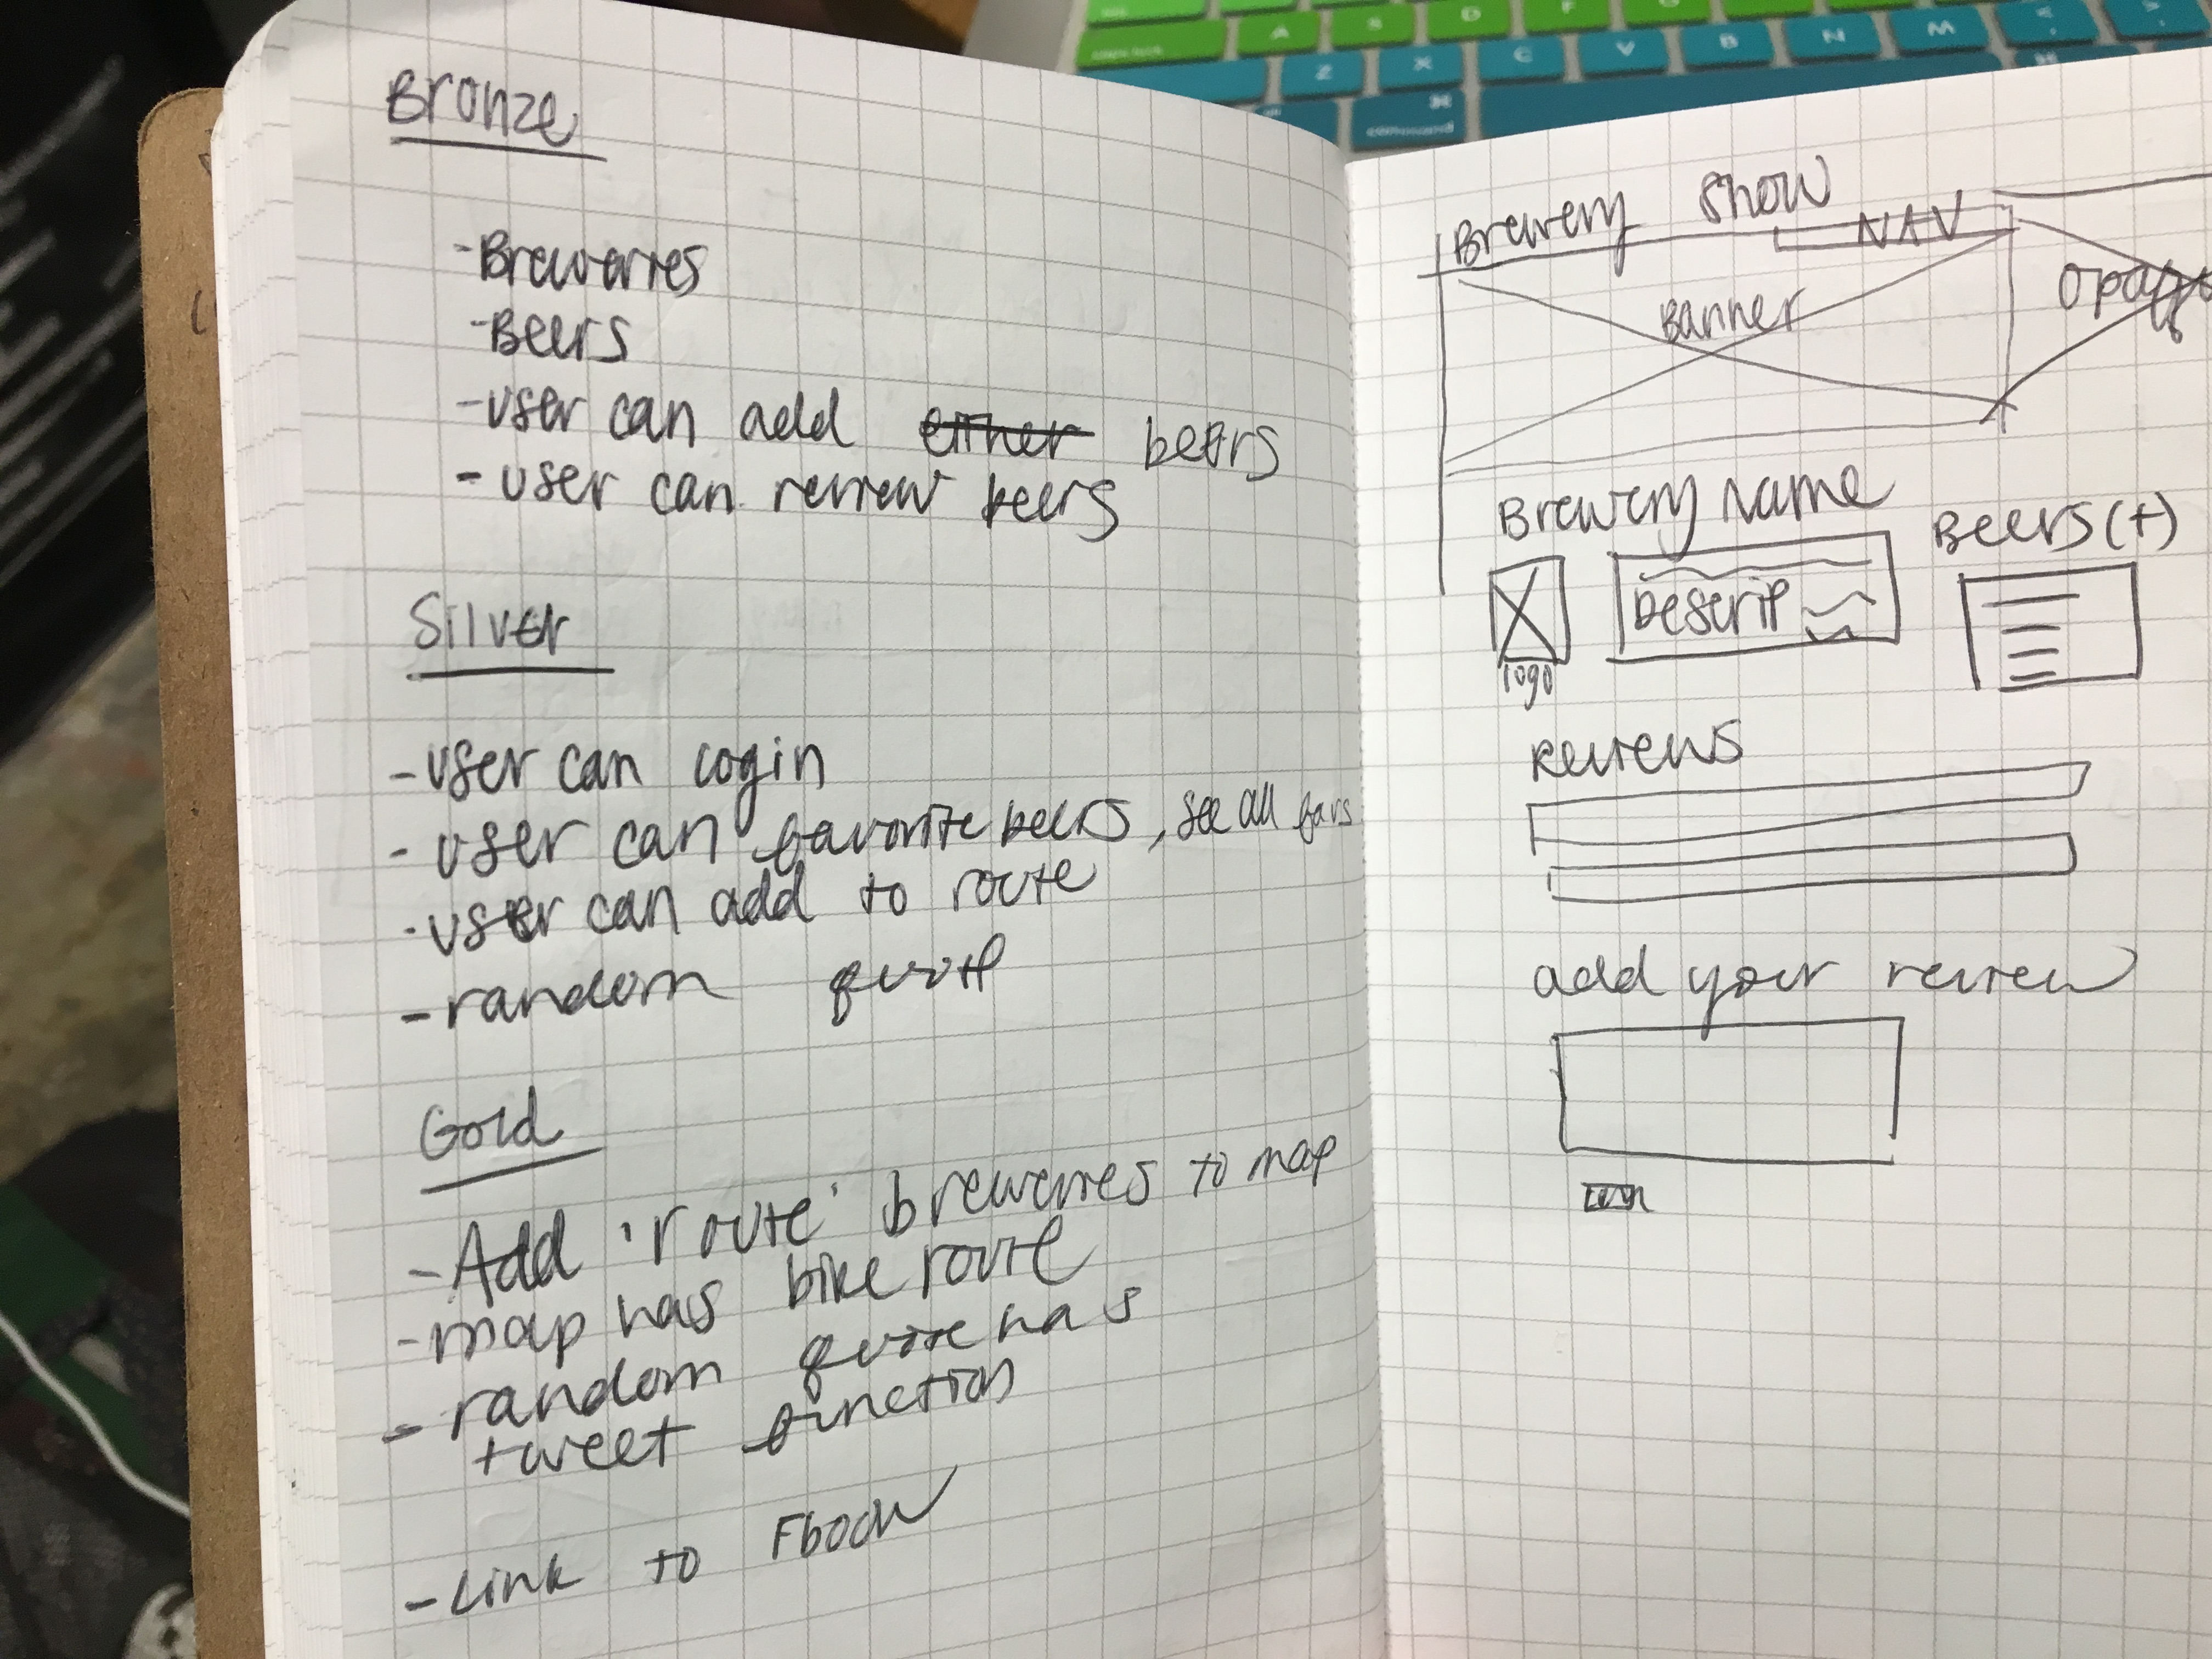 Bronze
- Breweries
- Beers
- user can add either beers
- user can review beers
Silver
- user can login
- user can favorite beers, see all favs
- user can add to route
- random quote
Gold
- Add 'route' breweries to map
- map has bike route
- random quote has
tweet function
- Link to Fbook
Brewery Show
NAV
Banner
Brewery Name
Beers (+)
Descrip
logo
Reviews
add your review
A S D F
Z X C V B N M
command